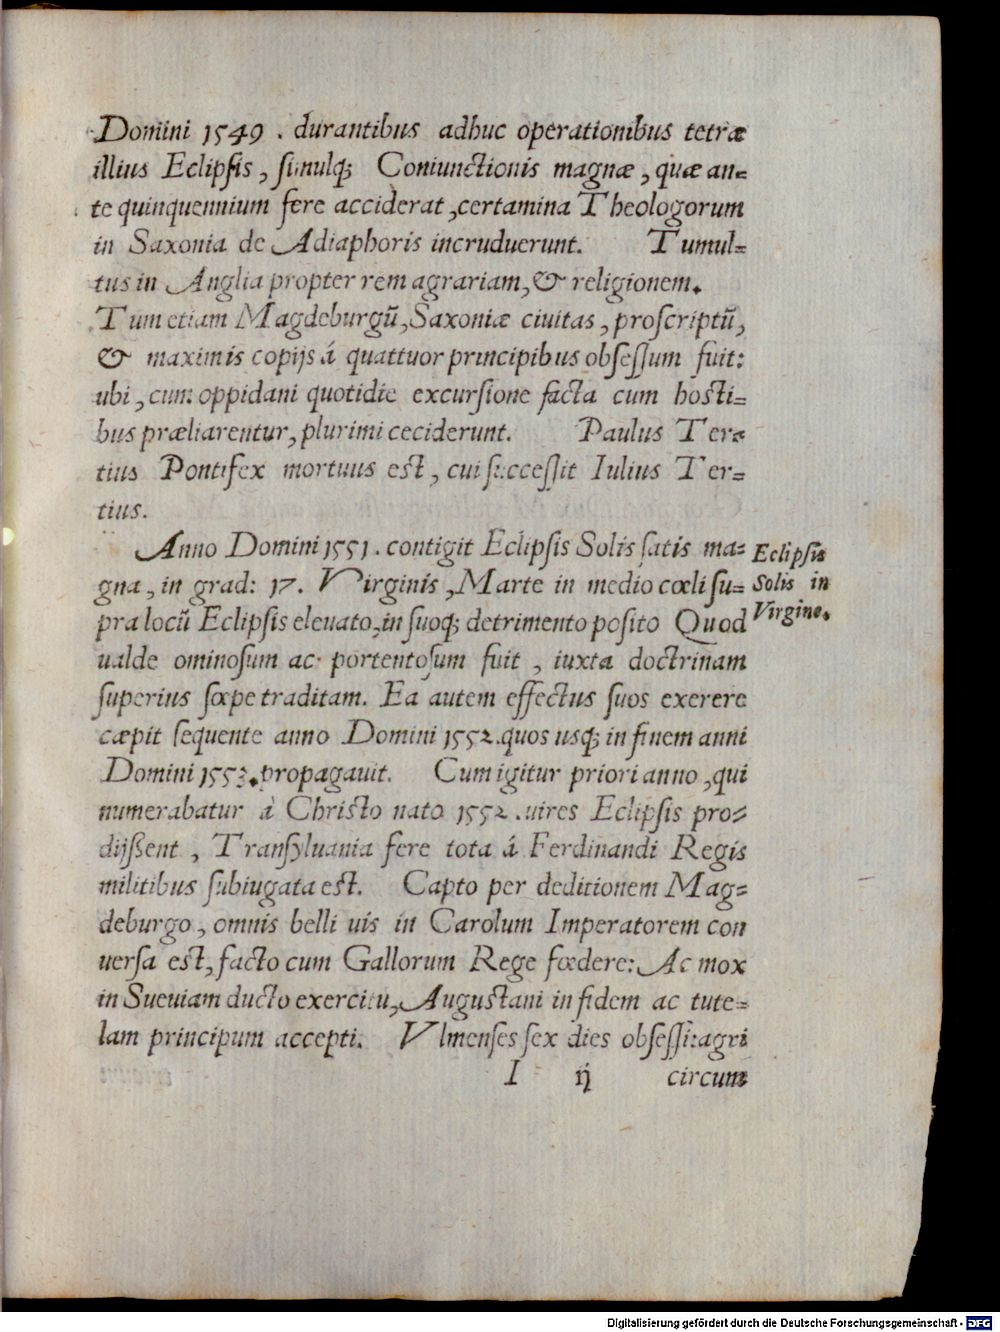 Domini 1549. durantibus adhuc operationibus tetræ
illius Eclipsis, simulq; Coniunctionis magnæ, quæ an=
te quinquennium fere acciderat, certamina Theologorum
in Saxonia de Adiaphoris incruduerunt. Tumul=
tus in Anglia propter rem agrariam, & religionem.
Tum etiam Magdeburgũ, Saxoniæ ciuitas, proscriptũ,
& maximis copijs á quattuor principibus obsessum fuit:
ubi, cum oppidani quotidie excursione facta cum hosti=
bus præliarentur, plurimi ceciderunt. Paulus Ter=
tius Pontifex mortuus est, cui successit Iulius Ter=
tius.
Anno Domini 1551. contigit Eclipsis Solis satis ma=
gna, in grad: 17. Virginis, Marte in medio cœli su=
pra locũ Eclipsis eleuato, in suoq; detrimento posito Quod
ualde ominosum ac portentosum fuit, iuxta doctrinam
superius sæpe traditam. Ea autem effectus suos exerere
cæpit sequente anno Domini 1552. quos usq; in finem anni
Domini 1553. propagauit. Cum igitur priori anno, qui
numerabatur à Christo nato 1552. uires Eclipsis pro=
dijßent, Transyluania fere tota á Ferdinandi Regis
militibus subiugata est. Capto per deditionem Mag=
deburgo, omnis belli uis in Carolum Imperatorem con
uersa est, facto cum Gallorum Rege fœdere: Ac mox
in Sueuiam ducto exercitu, Augustani in fidem ac tute=
lam principum accepti. Vlmenses sex dies obsessi: agri
I ij circum
Eclipsis
Solis in
Virgine.
Digitalisierung gefördert durch die Deutsche Forschungsgemeinschaft - DFG